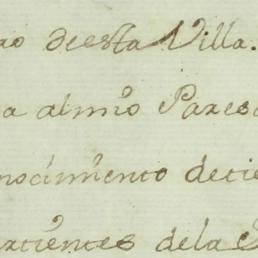 ro desta Villa.
a al mio Pares
nocimiento de tie
rtientes de la